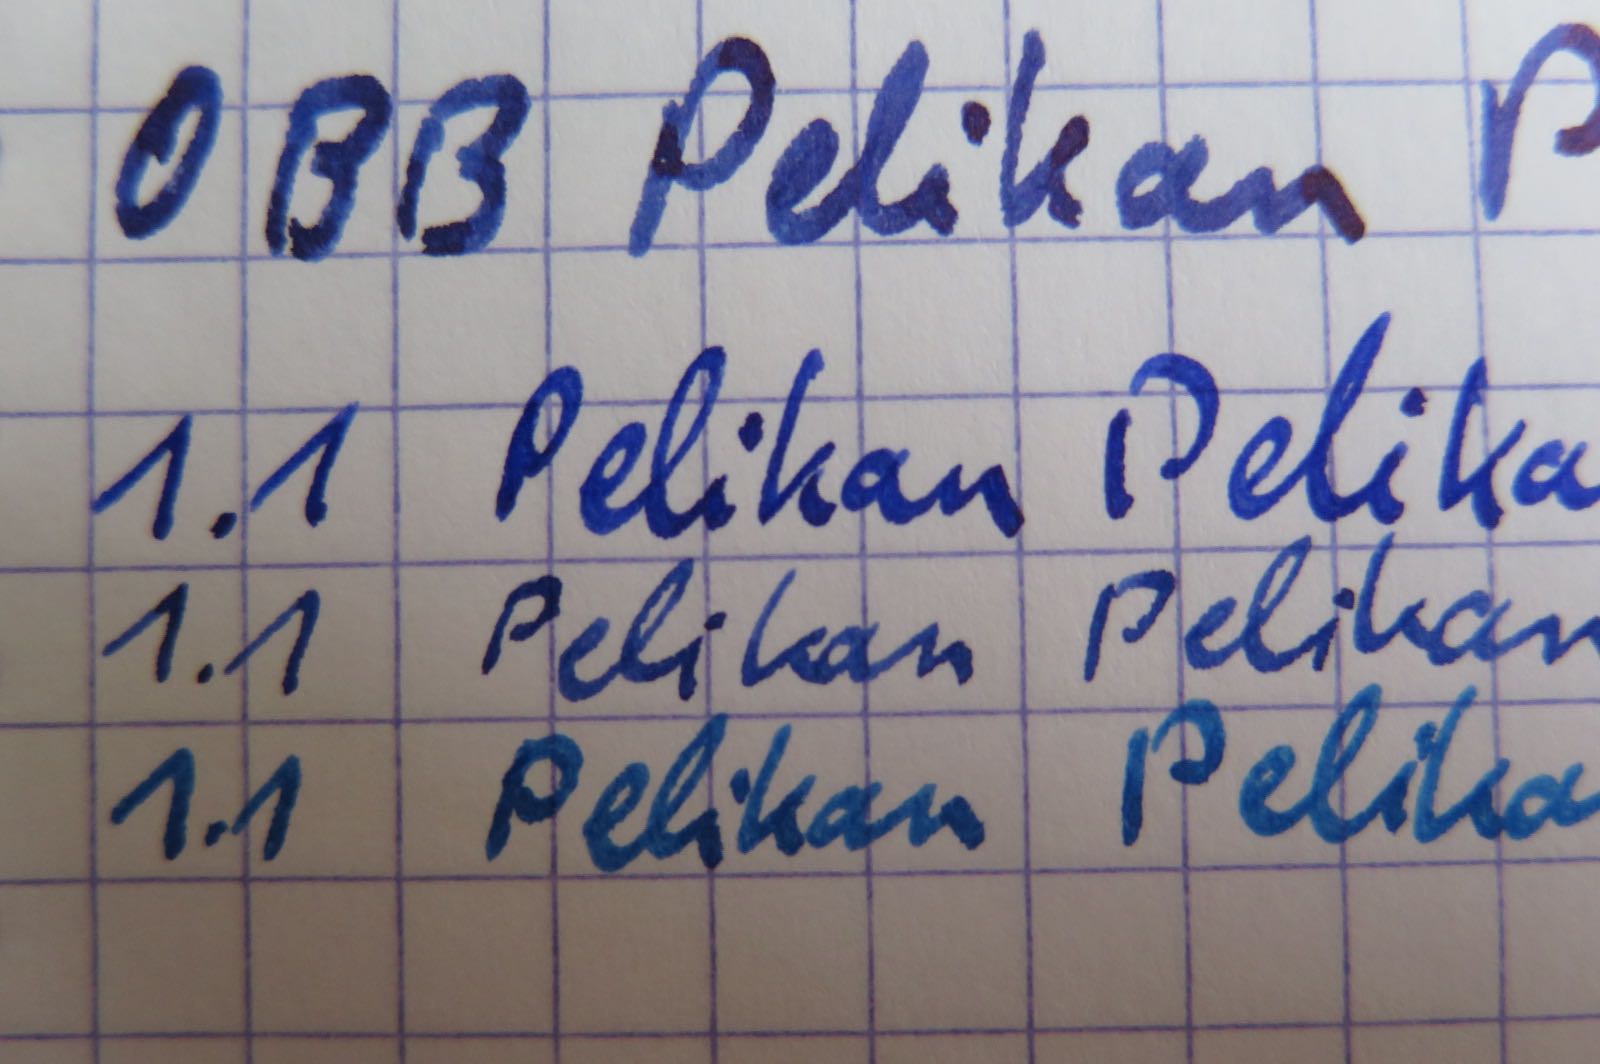 OBB Pelikan P
1.1 Pelikan Pelika
1.1 Pelikan Pelikan
1.1 Pelikan Pelika